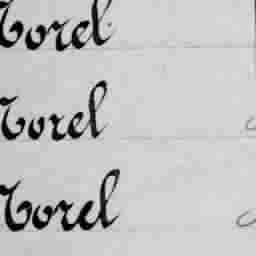 Morel
Morel
Morel